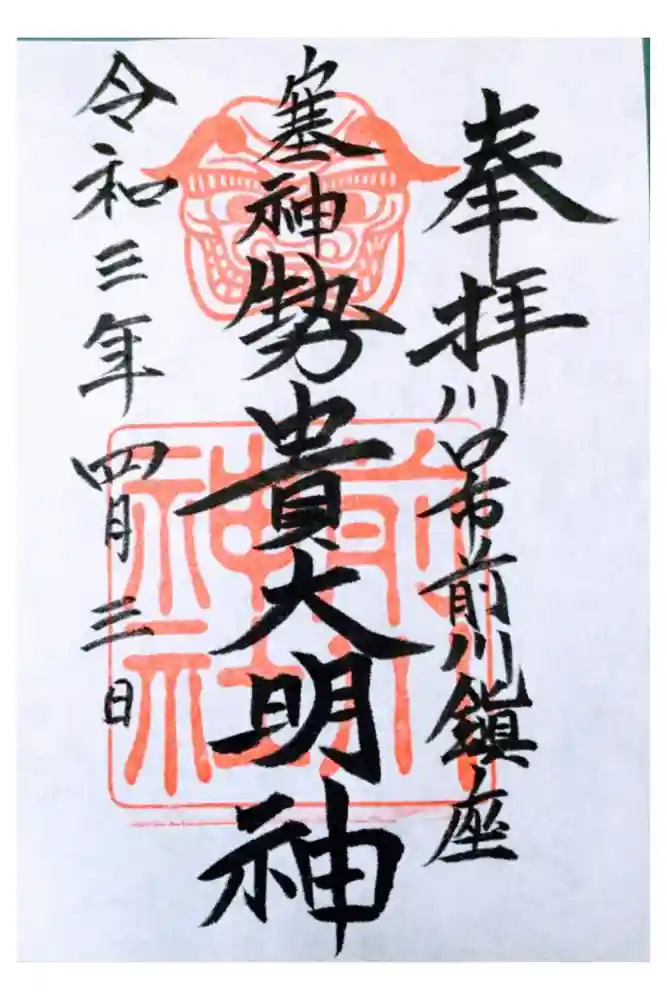 奉拝
川口市前川鎮座
塞神
勢貴大明神
令和三年四月三日
前川神社